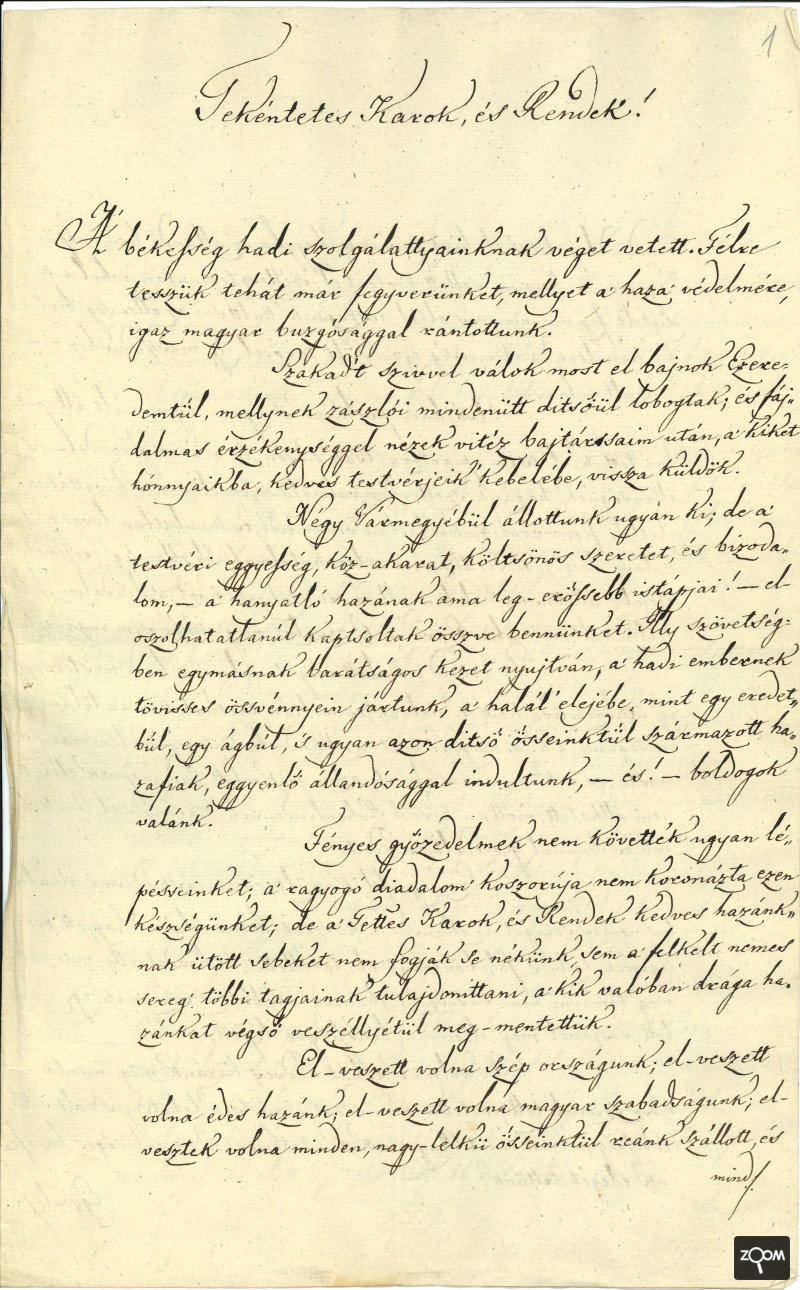 1
Tekéntetes Karok, és Rendek!
A' békesség hadi szolgálattyainknak véget vetett. Félre
tesszük tehát már fegyverünket, mellyet a haza védelmére,
igaz magyar buzgósággal rántottunk.
Szakadt szivvel válok most el bajnok Ezere-
demtül, mellynek zászlói mindenütt ditsőül lobogtak; és fáj„
dalmas érzékenységgel nézek vitéz bajtárssaim után, a kiket
hónnyaikba, kedves testvérjeik' kebelébe, vissza küldök.
Négy Vármegyébül állottunk ugyan ki; de a
testvéri eggyesség, köz-akarat, költsönös szeretet, és bizoda„
lom, — a hanyatló hazának ama leg-erőssebb istápjai! — el-
oszolhatatlanúl kaptsoltak öszve bennünket. Illy szövetség-
ben egymásnak barátságos kezet nyujtván, a hadi embernek
tövisses össvénnyein jártunk, a halál' elejébe, mint egy eredet„
bül, egy ágbúl, 's ugyan azon ditső ősseinktül származott ha„
zafiak, eggyenlő állandósággal indultunk, — és! — boldogok
valánk.
Fényes győzedelmek nem követték ugyan lé„
pésveinket; a ragyogó diadalom' koszorúja nem koronázta ezen
készségünket; de a Tettes Karok, és Rendek kedves hazánk„
nak ütött sebeket nem fogják se nékünk, sem a felkelt nemes
sereg' többi tagjainak tulajdonittani, a kik valóban drága ha„
zánkat végső veszéllyétül meg-mentettük.
El-veszett volna szép országunk; el-veszett
volna édes hazánk; el-veszett volna magyar szabadságunk; el-
vesztek volna minden, nagy-lelkü ősseinktül reánk szállott, és
mind/.
ZOOM